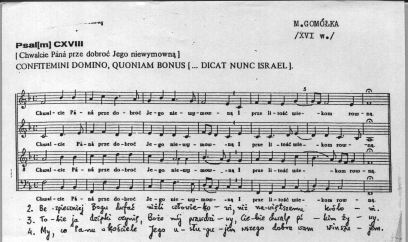 M.GOMÓŁKA
/XVI w./
Psal[m] CXVIII
[ Chwalcie Páná prze dobroć Jego niewymowną ]
CONFITEMINI DOMINO, QUONIAM BONUS [ ... DICAT NUNC ISRAEL ].
5
Chwal-cie Pá-ná prze do-broć Je-go nie-wy-mow-ną I prze li-tość wie-kom row-ną.
Chwal-cie Pá-ná prze do-broć Je-go nie-wy-mow-ną I prze li-tość wie-kom row-ną.
Chwal-cie Pá-ná prze do-broć Je-go nie-wy-mow-ną I prze li-tość wie-kom row-ną.
Chwal-cie Pá-ná prze do-broć Je-go nie-wy-mow-ną I prze li-tość wie-kom row-ną.
2. Bogu dufać niźli człowie-ko-wi, niż królo-wi.
3. To-bie ja dzięki czynię, Boże mój Cie-bie
4. My, w Pa-nu kościele Jego wszego dobra wam